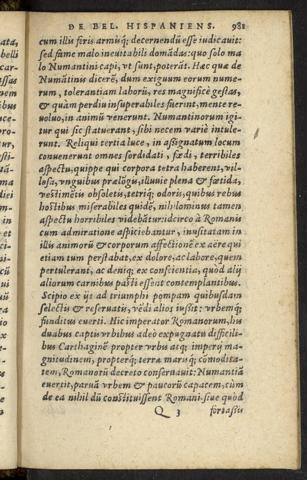 DE BEL. HISPANIENS. 981
cum illis firis armisq́; decernendũ esse iudicauit:
sed fame malo ineuitabili domãdas: quo solo ma
lo Numantini capi, vt sunt, poterãt. Hæc qua de
Numãtinis dicerẽ, dum exiguum eorum nume-
rum, tolerantiam laborũ, res magnificè gestas,
& quàm perdiu insuperabiles fuerint, mente re-
uoluo, in animũ venerunt. Numantinorum igi-
tur qui sic statuerant, sibi necem variè intule-
runt. Reliqui tertia luce, in assignatum locum
conuenerunt omnes sordidati, fœdi, terribiles
aspectu, quippe qui corpora tetra haberent, vil-
losa, vnguibus prælõgis, illuuie plena & fœtida,
vestimẽtis obsoletis, tetrisq́; odoris, quibus rebus
hostibus miserabiles quidẽ, nihilominus tamen
aspectu horribiles videbãtur: idcirco à Romanis
cum admiratione aspiciebantur, inusitatam in
illis animorũ & corporum affectionẽ ex aere qui
etiam tum perstabat, ex dolore, ac labore, quem
pertulerant, ac deniq́; ex conscientia, quòd alij
aliorum carnibus pasti essent contemplantibus.
Scipio ex ijs ad triumphi pompam quibusdam
selectis & reseruatis, vẽdi alios iussit: vrbemq́;
funditus euertit. Hic imperator Romanorum, his
duabus captis vrbibus adeò expugnatu difficili-
bus Carthaginẽ propter vrbis atq; imperij ma-
gnitudinem, propterq́; terræ marisq́; cõmodita-
tem, Romanorũ decreto conseruauit: Numantiã
euertit, paruã vrbem & paucorũ capacem, cùm
de ea nihil dũ constituissent Romani. siue quòd
Q 3 fortassis